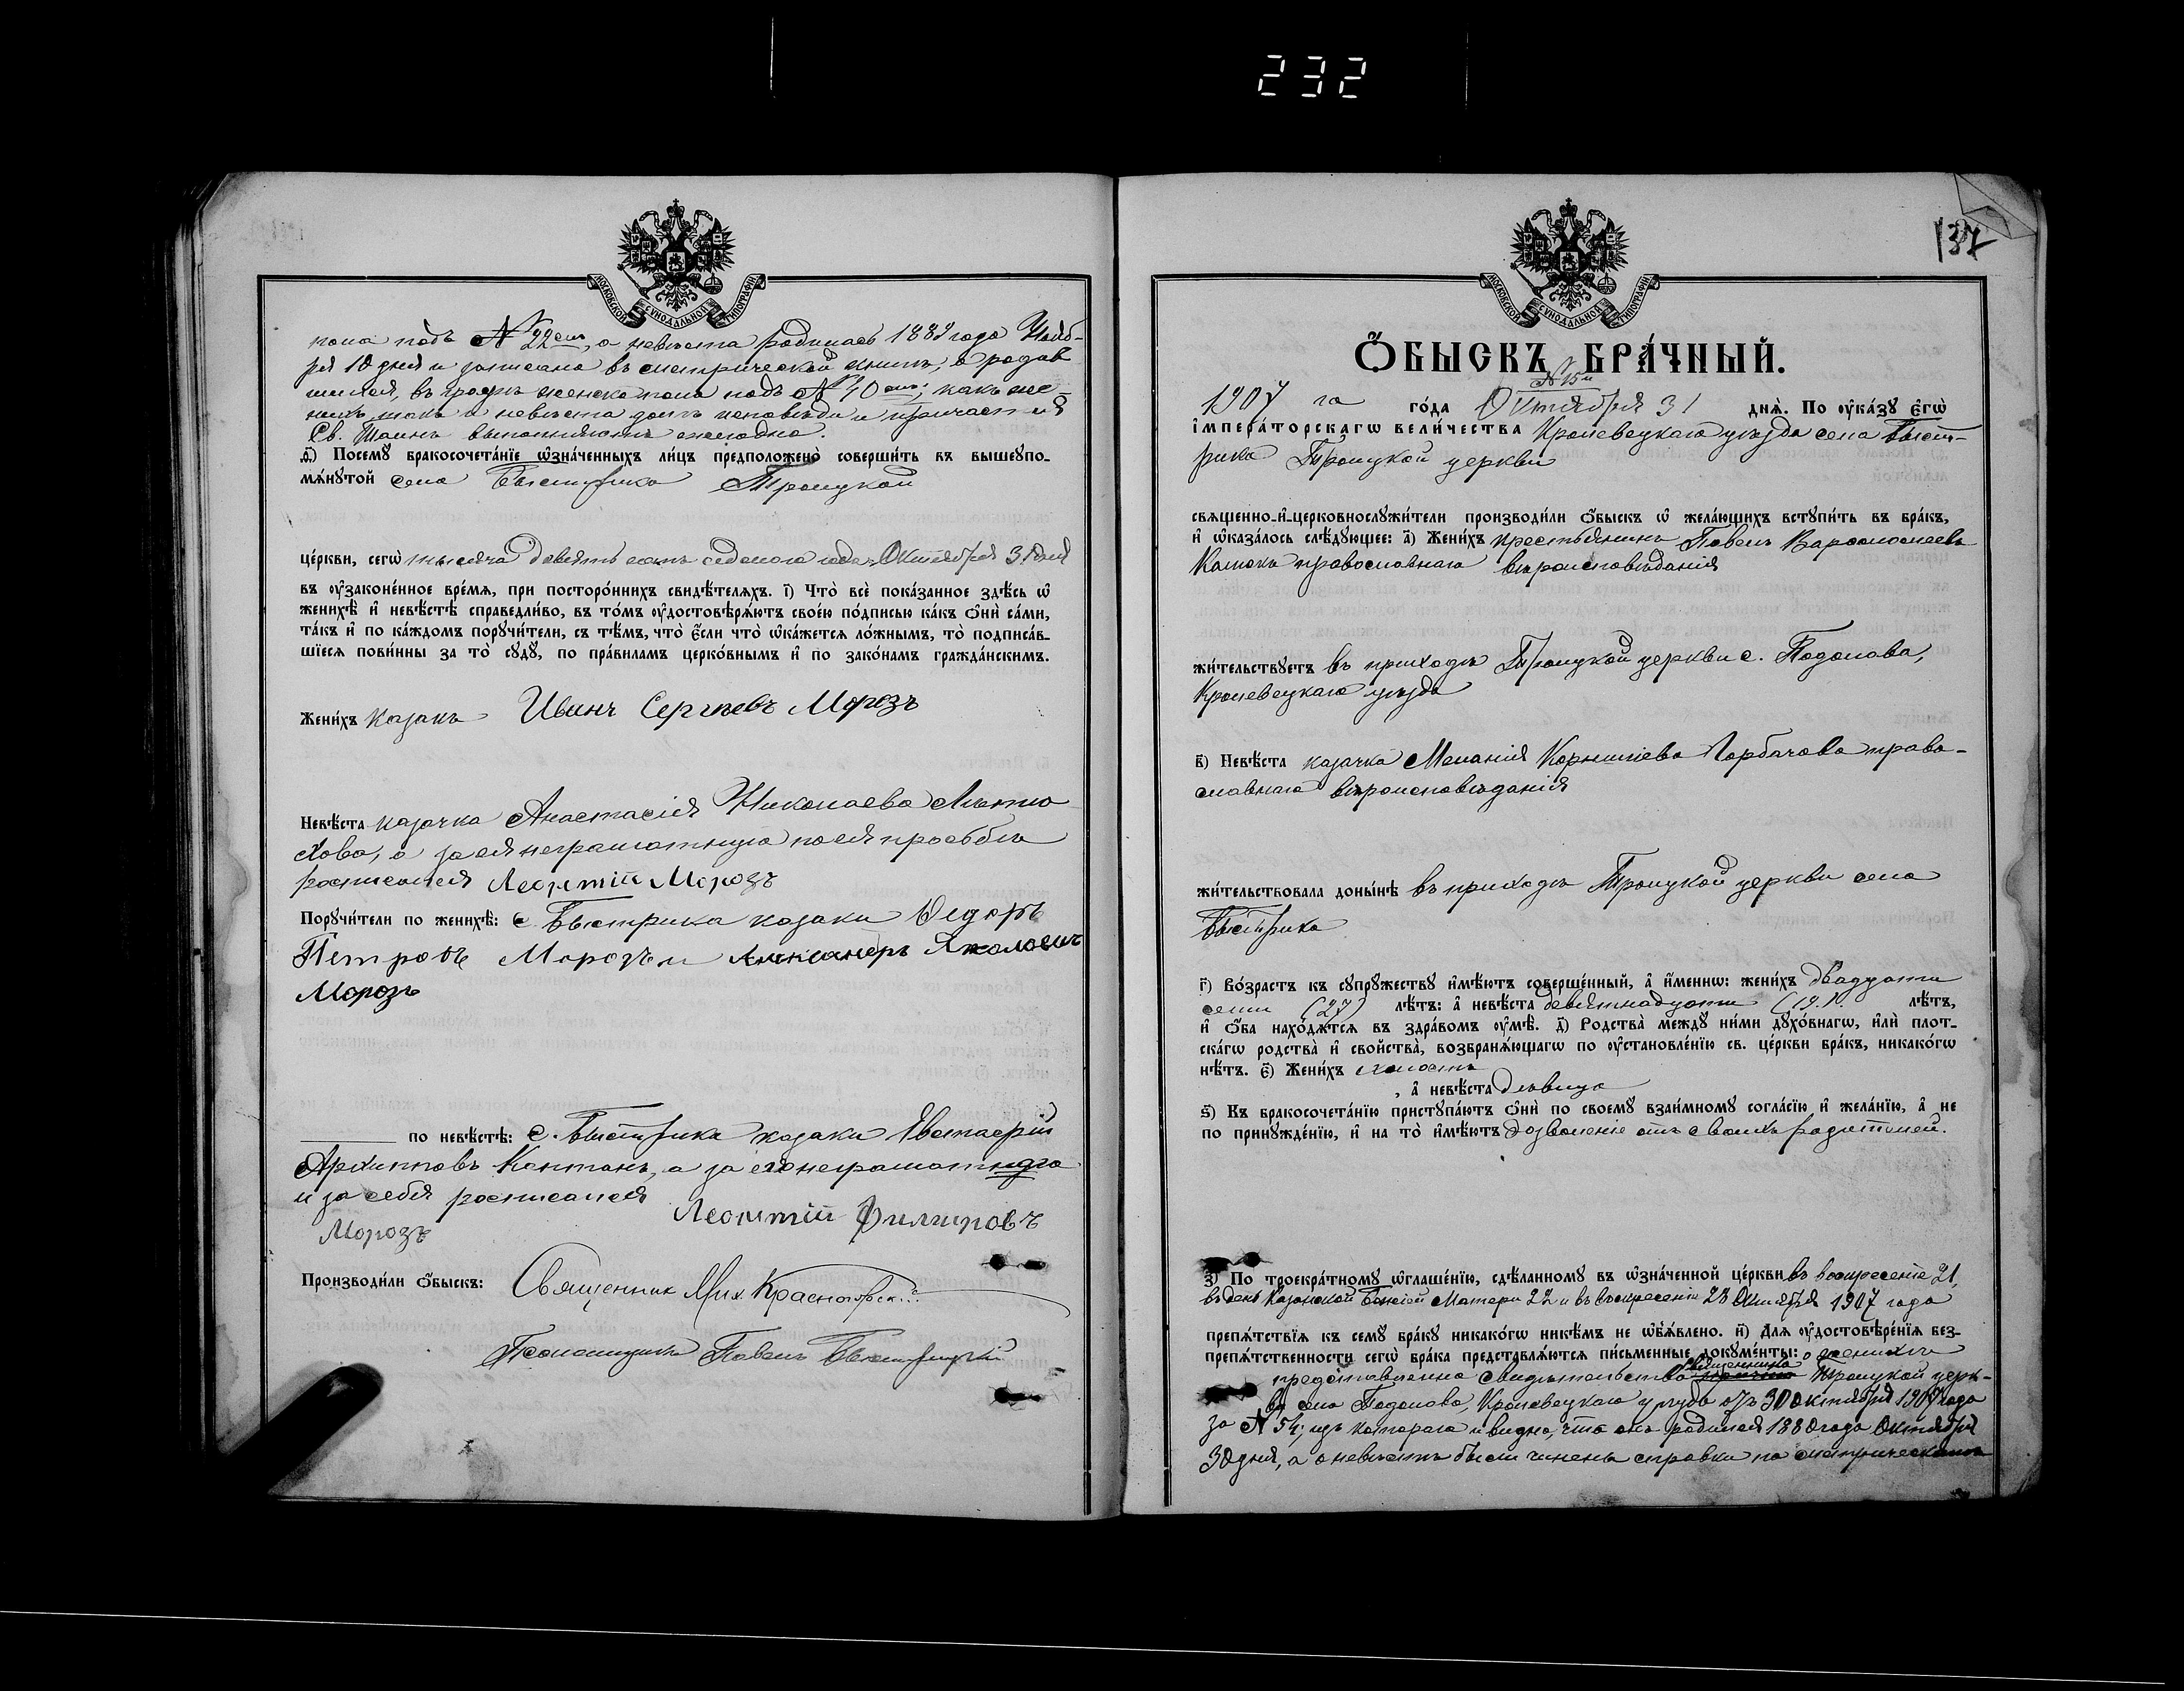 232
МОСКОВСКОЙ СѴНОДАЛЬНОЙ ТИПОГРАФІИ
пола подъ № 22емъ, а невѣста родилась 188 года Нояб-
ря 10 дня и записана въ метрической книгѣ, о родив
шихся, въ графѣ женска пола подъ № 40 какъ же-
нихъ такъ и невѣста долгъ исповѣди и причастія
Св. Таинъ выполняютъ ежегодно.
Посемꙋ бракосочета́нїе ѡ҆зна́ченныхъ ли́цъ предположено̀ соверши́ть въ вышеꙋпо-
мѧ́нꙋтой села Быстрика Троицкой
це́ркви, сегѡ̀ тысяча девятьсотъ седьмого года Октября 31 дня
въ ᲂу҆зако́ненное вре́мѧ, при посторо́ннихъ свидѣ́телѧхъ. і҃) Что̀ всѐ пока́занное здѣ́сь ѡ҆
женихѣ̀ и҆ невѣ́стѣ справедли́во, въ то́мъ ᲂу҆достовѣрѧ́ютъ свое́ю по́дписью ка́къ ѻ҆нѝ са́ми,
та́къ и҆ по ка́ждомъ порꙋчи́тели, съ тѣ́мъ, что̀ є҆́сли что̀ ѡ҆ка́жетсѧ ло́жнымъ, то̀ подписа́в-
шїесѧ пови́нны за то̀ сꙋдꙋ̀, по пра́виламъ церко́внымъ и҆ по зако́намъ гражда́нскимъ.
Жени́хъ казакъ Иванъ Сергѣевъ Морозъ
Невѣ́ста казачка Анастасія Николаева
хова, а за ея неграмотную по ея просьбѣ
росписался Леонтій Морозъ
Порꙋчи́тели по женихѣ̀: с. Быстрика козаки Ѳедоръ
Петровъ Морозъ и Александръ Яковлевъ
Морозъ
по невѣ́стѣ: с. Быстрика козаки Евстафій
Архиповъ Коптанъ, а за его неграмотнаго
и за себя росписался Леонтій Филиповъ
Морозъ
Производи́ли ѻ҆́быскъ: Священникъ Мих. Красногорскій
Псаломщикъ Павелъ Быстрицкій
137
МОСКОВСКОЙ СѴНОДАЛЬНОЙ ТИПОГРАФІИ
Ѻ҆́БЫСКЪ БРА́ЧНЫЙ.
№ 15й
1907 го го́да Октября 31 днѧ̀. По ᲂу҆ка́зꙋ є҆гѡ̀
і҆мпера́торскагѡ вели́чества Кролевецкаго уѣзда села Быст-
рика Троицкой церкви
свѧщенно-и҆-церковнослꙋжи́тели производи́ли ѻ҆́быскъ ѡ҆ жела́ющихъ встꙋпи́ть въ бра́къ,
и҆ ѡ҆каза́лось слѣ́дꙋющее: а҃) Жени́хъ крестьянинъ Павелъ Варѳоломеевъ
православнаго вѣроисповѣданія
жи́тельствꙋетъ въ приходѣ Троицкой церкви с. Подолова,
Кролевецкаго уѣзда
в҃) Невѣ́ста казачка Меланія Корниліева Горбачова право-
славнаго вѣроисповѣданія
жи́тельствовала доны́нѣ въ приходѣ Троицкой церкви села
Быстрика
г҃) Во́зрастъ къ сꙋпрꙋ́жествꙋ и҆мѣ́ютъ соверше́нный, а҆ и҆́меннѡ: жени́хъ двадцати
семи (27) лѣ́тъ: а҆ невѣ́ста девятнадцати (19) лѣ́тъ,
и҆ ѻ҆́ба нахо́дѧтсѧ въ здра́вомъ ᲂу҆мѣ̀. д҃) Родства̀ междꙋ̀ ни́ми дꙋхо́внагѡ, и҆лѝ плот-
ска́гѡ родства̀ и҆ сво́йства̀, возбранѧ́ющагѡ по ᲂу҆становле́нїю св. це́ркви бра́къ, никако́гѡ
нѣ́тъ. є҃) Жени́хъ холостъ
, а҆ невѣ́ста дѣвица
ѕ҃) Къ бракосочета́нїю пристꙋпа́ютъ ѻ҆нѝ по своемꙋ̀ взаи́мномꙋ согла́сїю и҆ жела́нїю, а҆ не
по принꙋжде́нїю, и҆ на то̀ и҆мѣ́ютъ дозволеніе отъ своихъ родителей.
з҃) По троекра́тномꙋ ѡ҆глаше́нїю, сдѣ́ланномꙋ въ ѡ҆зна́ченной це́ркви въ воскресеніе 21,
въ день Казанской Божіей Матери 22 и въ воскресеніе 28 Октября 1907 года
препѧ́тствїѧ къ семꙋ̀ бра́кꙋ никако́гѡ никѣ́мъ не ѡ҆бъѧ́влено. и҃) Длѧ ᲂу҆достовѣре́нїѧ без-
препѧ́тственности сегѡ̀ бра́ка представлѧ́ютсѧ пи́сьменные докꙋме́нты: о женихѣ
представлено свидѣтельство священника Троицкой церк-
ви села Подолова, Кролевецкаго уѣзда отъ 30 октября 1907 года
за № 54; изъ котораго и видно, что онъ родился 1880 года Октября
30 дня, а о невѣстѣ были чинены справки по метрическимъ